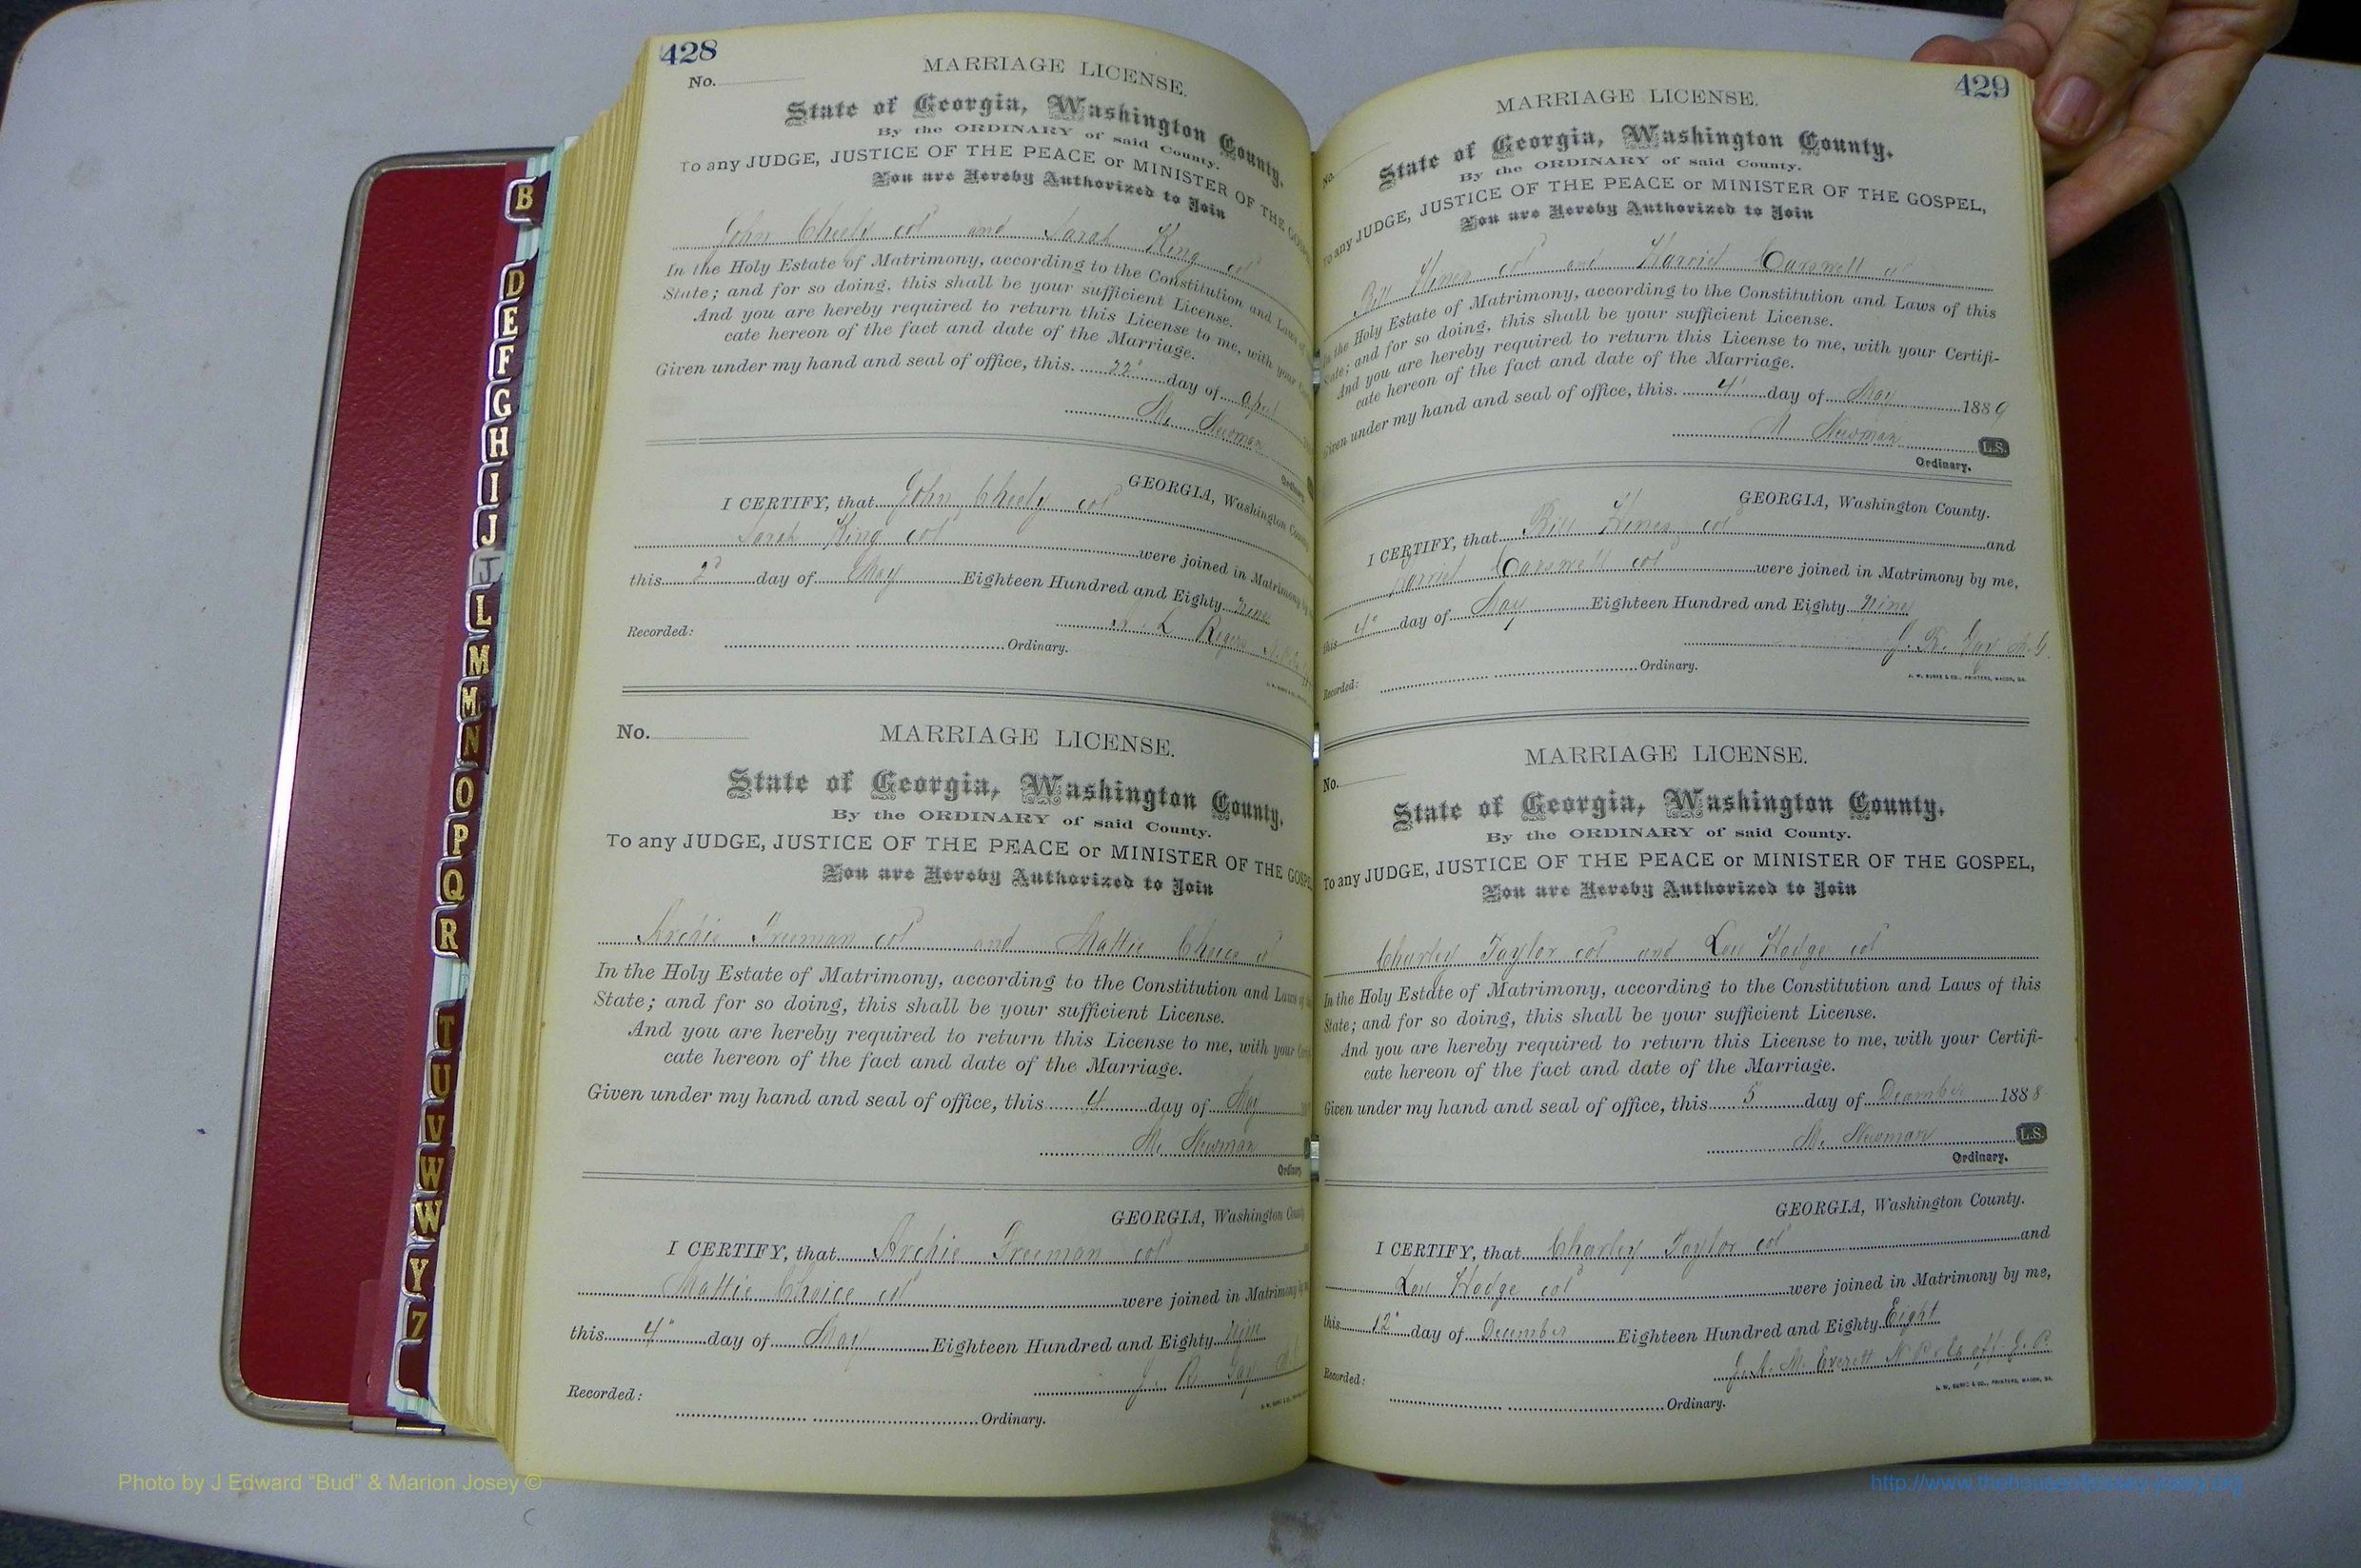 428
No.
MARRIAGE LICENSE.
State of Georgia, Washington County.
By the ORDINARY of said County.
To any JUDGE, JUSTICE OF THE PEACE or MINISTER OF THE GOSPEL
You are Hereby Authorized to Join
John Cheely col and Sarah King col
In the Holy Estate of Matrimony, according to the Constitution and Laws of
State; and for so doing, this shall be your sufficient License.
And you are hereby required to return this License to me, with your
cate hereon of the fact and date of the Marriage.
Given under my hand and seal of office, this 22d day of April
M. Newman
Ordinary
GEORGIA, Washington County
I CERTIFY, that John Cheely col
Sarah King col were joined in Matrimony
this 2d day of May Eighteen Hundred and Eighty Nine
L Rogers
Recorded: Ordinary.
No.
MARRIAGE LICENSE.
State of Georgia, Washington County.
By the ORDINARY of said County.
To any JUDGE, JUSTICE OF THE PEACE or MINISTER OF THE GOSPE
You are Hereby Authorized to Join
Archie Freeman col and Mattie Choice col
In the Holy Estate of Matrimony, according to the Constitution and Laws of
State; and for so doing, this shall be your sufficient License.
And you are hereby required to return this License to me, with your
cate hereon of the fact and date of the Marriage.
Given under my hand and seal of office, this 4 day of May
M. Newman
Ordinary
GEORGIA, Washington County
I CERTIFY, that Archie Freeman col
Mattie Choice col were joined in Matrimony
this 4" day of May Eighteen Hundred and Eighty nine
J. R. Gay
Recorded: Ordinary.
429
MARRIAGE LICENSE.
No.
State of Georgia, Washington County.
By the ORDINARY of said County.
To any JUDGE, JUSTICE OF THE PEACE or MINISTER OF THE GOSPEL,
You are Hereby Authorized to Join
Bill Hines col and Harriet Carswell col
In the Holy Estate of Matrimony, according to the Constitution and Laws of this
State; and for so doing, this shall be your sufficient License.
And you are hereby required to return this License to me, with your Certifi-
cate hereon of the fact and date of the Marriage.
Given under my hand and seal of office, this 4" day of May 1889
M Newman L.S.
Ordinary.
GEORGIA, Washington County.
I CERTIFY, that Bill Hines col and
Harriet Carswell col were joined in Matrimony by me,
this 4" day of May Eighteen Hundred and Eighty Nine
J. R. Gay M.G.
Recorded: Ordinary.
J. W. BURKE & CO., PRINTERS, MACON, GA.
MARRIAGE LICENSE.
No.
State of Georgia, Washington County.
By the ORDINARY of said County.
To any JUDGE, JUSTICE OF THE PEACE or MINISTER OF THE GOSPEL,
You are Hereby Authorized to Join
Charley Taylor col and Lou Hodge col
In the Holy Estate of Matrimony, according to the Constitution and Laws of this
State; and for so doing, this shall be your sufficient License.
And you are hereby required to return this License to me, with your Certifi-
cate hereon of the fact and date of the Marriage.
Given under my hand and seal of office, this 5 day of December 1888
M. Newman L.S.
Ordinary.
GEORGIA, Washington County.
I CERTIFY, that Charley Taylor col and
Lou Hodge col were joined in Matrimony by me,
this 12" day of December Eighteen Hundred and Eighty Eight
J. A. M. Everett N.P. & Ex off J.P.
Recorded: Ordinary.
J. W. BURKE & CO., PRINTERS, MACON, GA.
B
D
E
F
G
H
I
J
J
L
M
M
N
O
P
Q
R
T
U
V
W
W
Y
Z
Photo by J Edward “Bud” & Marion Josey ©